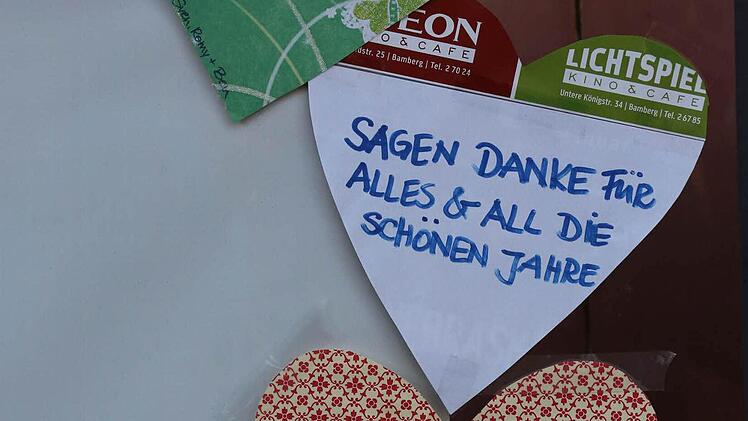 Sven, Romy + Ben
EON
NO & CAFE
dstr. 25 | Bamberg | Tel. 2 70 24
LICHTSPIEL
KINO & CAFE
Untere Königstr. 34 | Bamberg | Tel. 2 67 85
SAGEN DANKE FÜR
ALLES & ALL DIE
SCHÖNEN JAHRE